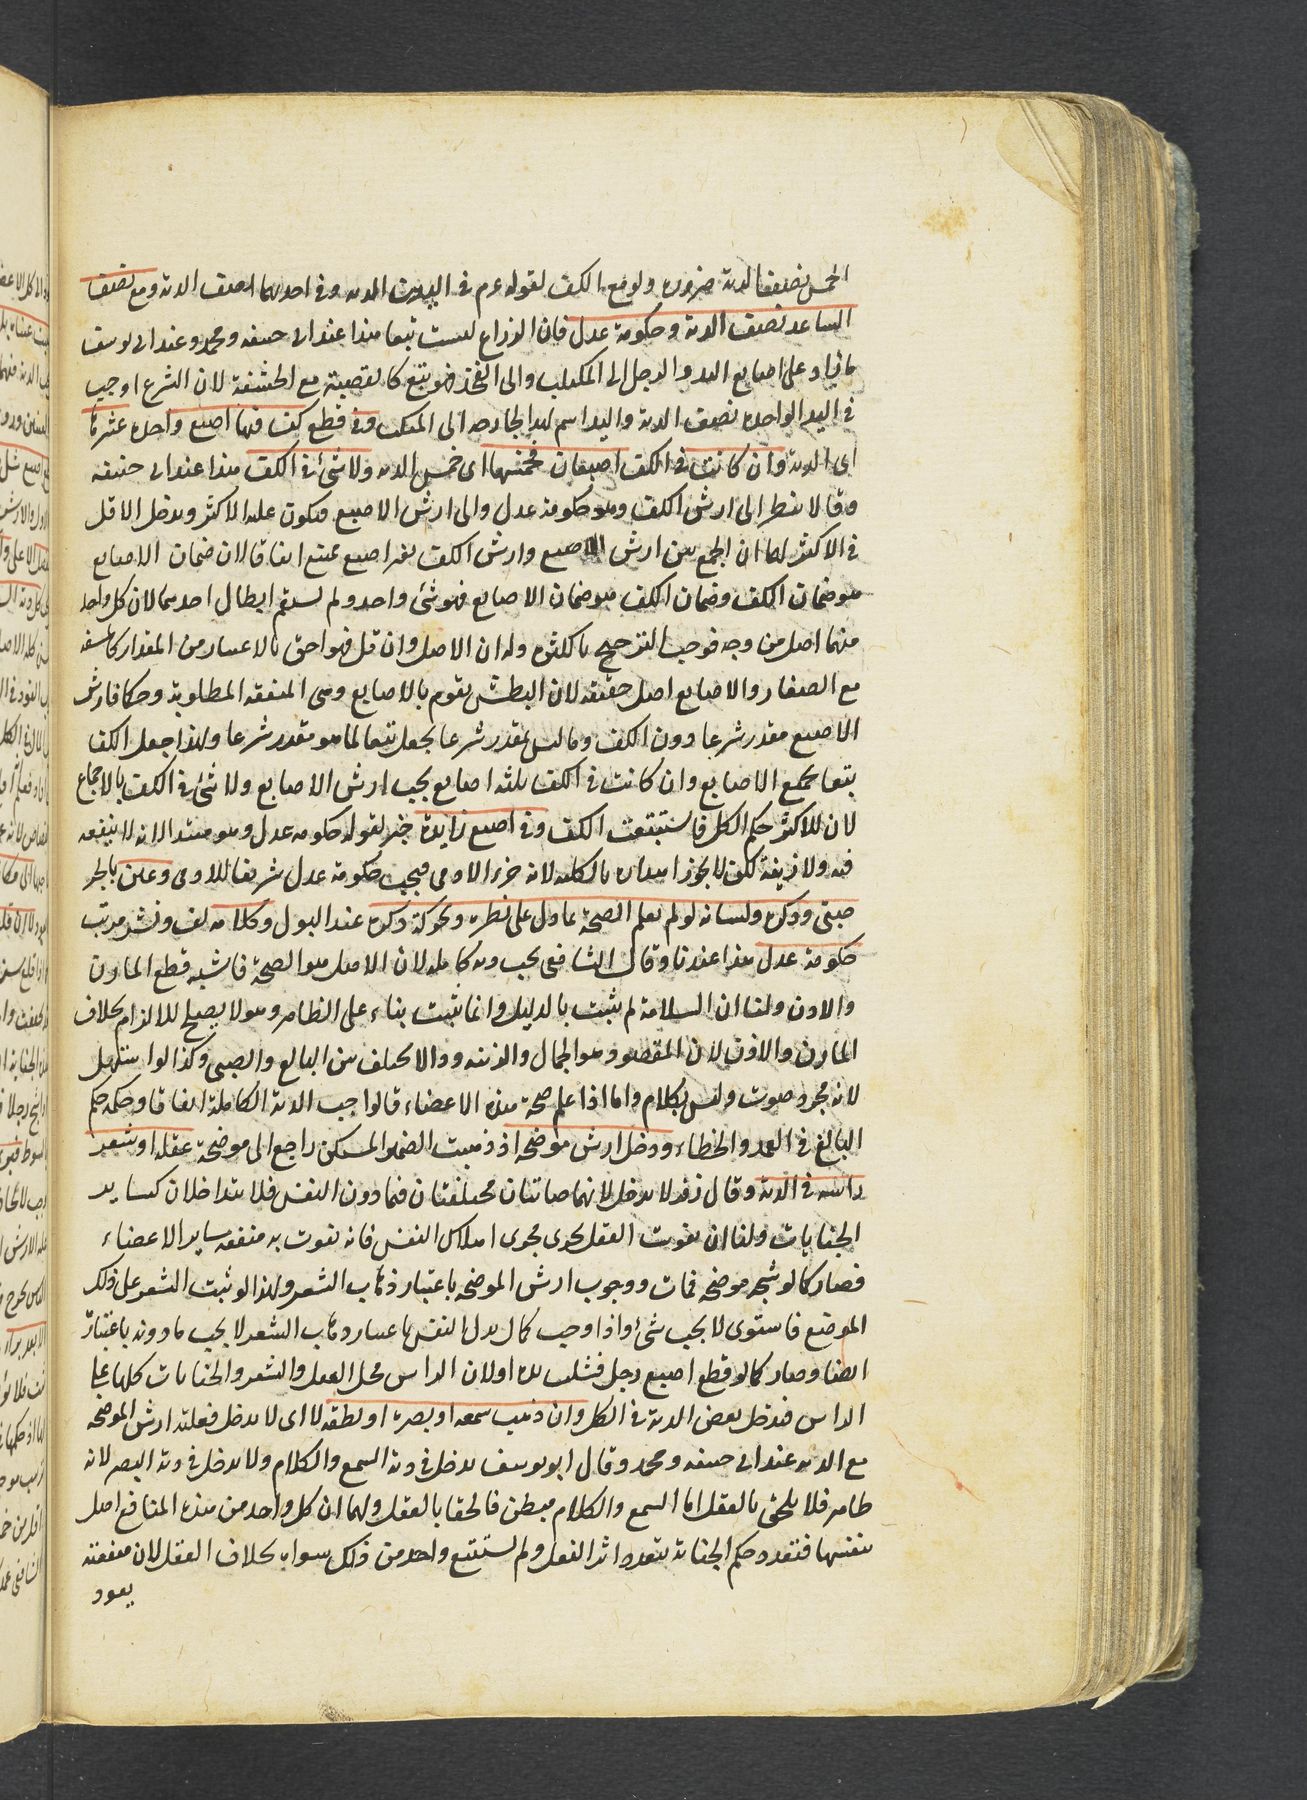 الخمس نصف الدية ضرورة ولو مع الكف لقوله عم في اليدين الدية وفي احديهما نصف الدية ومع نصف
الساعد نصف الدية وحكومة عدل فان الذراع ليست تبعا هذا عند ابى حنيفه ومحمد وعند ابى يوسف
ما زاد على اصابع اليد والرجل الى المنكب والى الفخذ فهو تبع كالقصبة مع الحشفة لان الشرع اوجب
في اليد الواحدة نصف الدية واليد اسم لهذا الجارحة الى المنكب وفي قطع كف فيها اصبع واحدة عشرها
اى الدية وان كانت في الكف اصبعان فخمسها اى خمس الدية ولا شئ في الكف هذا عند ابى حنيفه
وقالا ينظر الى ارش الكف وهو حكومة عدل والى ارش الاصبع فيكون عليه الاكثر ويدخل الاقل
في الاكثر لهما ان الجمع بين ارش الاصبع وارش الكف بغير اصبع ممتنع اتفاقا لان ضمان الاصابع
هو ضمان الكف وضمان الكف هو ضمان الاصابع فهو شئ واحد ولم يستقم ابطال احدهما لان كل واحد
منهما اصل من وجه فوجب الترجيح بالكثرة وله ان الاصل وان قل فهو احق بالاعتبار من المقدار كالسفه
مع الصغار والاصابع اصل حقيقة لان البطش يقوم بالاصابع وهى المنفعة المطلوبة وحكما فارش
الاصبع مقدر شرعا دون الكف وما ليس بمقدر شرعا يجعل تبعا لما هو مقدر شرعا ولهذا جعل الكف
تبعا لجميع الاصابع وان كانت في الكف ثلثه اصابع يجب ارش الاصابع ولا شئ في الكف بالاجماع
لان للاكثر حكم الكل فاستتبعت الكف وفي اصبع زايدة خبر لقوله حكومه عدل وهو مبتدا لانه لا منفعه
فيه ولا زينة لكن لا يجوز اهدارها بالكلية لانه جزء الادمى فيجب حكومة عدل تشريفا للادمى وعين بالجر
صبى وذكره ولسانه لو لم يعلم الصحة بما دل على نظره وبحركة ذكره عند البول وكلامه لف ونشر مرتب
حكومة عدل هذا عندنا وقال الشافعى يجب دية كاملة لان الاصل هو الصحة فاشبه قطع المارن
والاذن ولنا ان السلامة لم يثبت بالدليل وانما يثبت بناء على الظاهر وهو لا يصلح للالزام بخلاف
المارن والاذن لان المقصود هو الجمال والزينه وذا لا يختلف بين البالغ والصبى وكذا لو استهل
لانه مجرد صوت وليس بكلام واما اذا علم صحة هذه الاعضاء قالواجب الدية الكاملة اتفاقا وحكمه حكم
البالغ في العمد والخطاء ودخل ارش موضحة اذ ذهبت الضمير المستكن راجع الى موضحة عقله او شعر
راسه في الدية وقال زفر لا يدخل لانهما جنايتان مختلفتان فيما دون النفس فلا يتداخلان كساير
الجنايات ولنا ان تفويت العقل يجرى مجرى اهلاك النفس فانه تفوت به منفعه ساير الاعضاء
فصار كما لو شجه موضحة فمات ووجوب ارش الموضحه باعتبار ذهاب الشعر ولهذا لو ثبت الشعر على ذلك
الموضع فاستوى لا يجب شئ واذا وجب كمال بدل النفس باعتبار ذهاب الشعر لا يجب مادونه باعتباره
ايضا وصار كما لو قطع اصبع رجل فشلت يده او لان الراس محل العقل والشعر والجنايات كلها على
الراس فيدخل بعض الدية في الكل وان ذهب سمعه او بصره او نطقه لا اى لا يدخل فعليه ارش الموضحه
مع الدية عند ابى حنيفه ومحمد وقال ابو يوسف يدخل في دية السمع والكلام ولا يدخل في دية البصر لانه
ظاهر فلا يلحق بالعقل اما السمع والكلام مبطن فالحقا بالعقل ولهما ان كل واحد من هذه المنافع اصل
بنفسها فتعدد حكم الجناية بتعدد اثر الفعل ولم يستتبع واحد من ذلك سواه بخلاف العقل لان منفعته
يعود